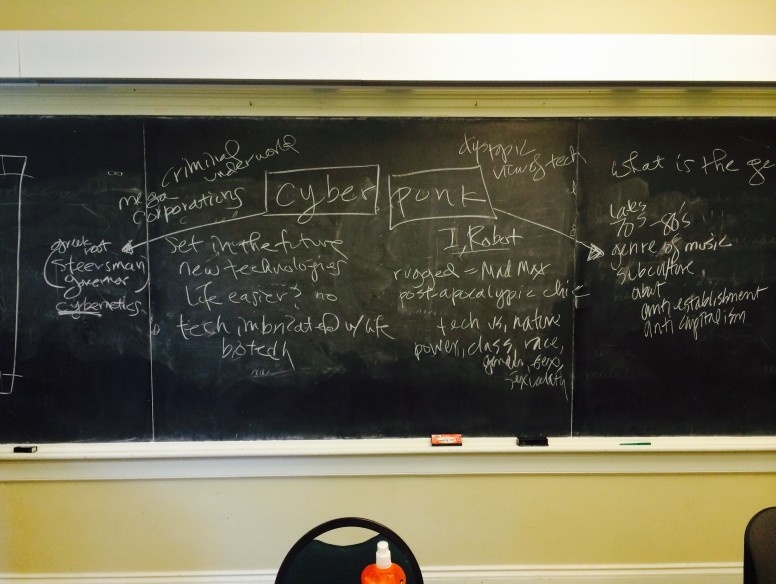 criminal
underworld
mega
corporations
cyber
punk
dystopic
view of tech
what is the ge
greek
root
(steersman
governor)
cybernetics
Set in the future
new technologies
life easier? no
tech imbricated w/ life
biotech
I, Robot
rugged = Mad Max
post-apocalyptic chic
tech vs. nature
power, class, race,
gender, sex,
sexuality
late
70's - 80's
genre of music
subculture
about
anti establishment
anti capitalism